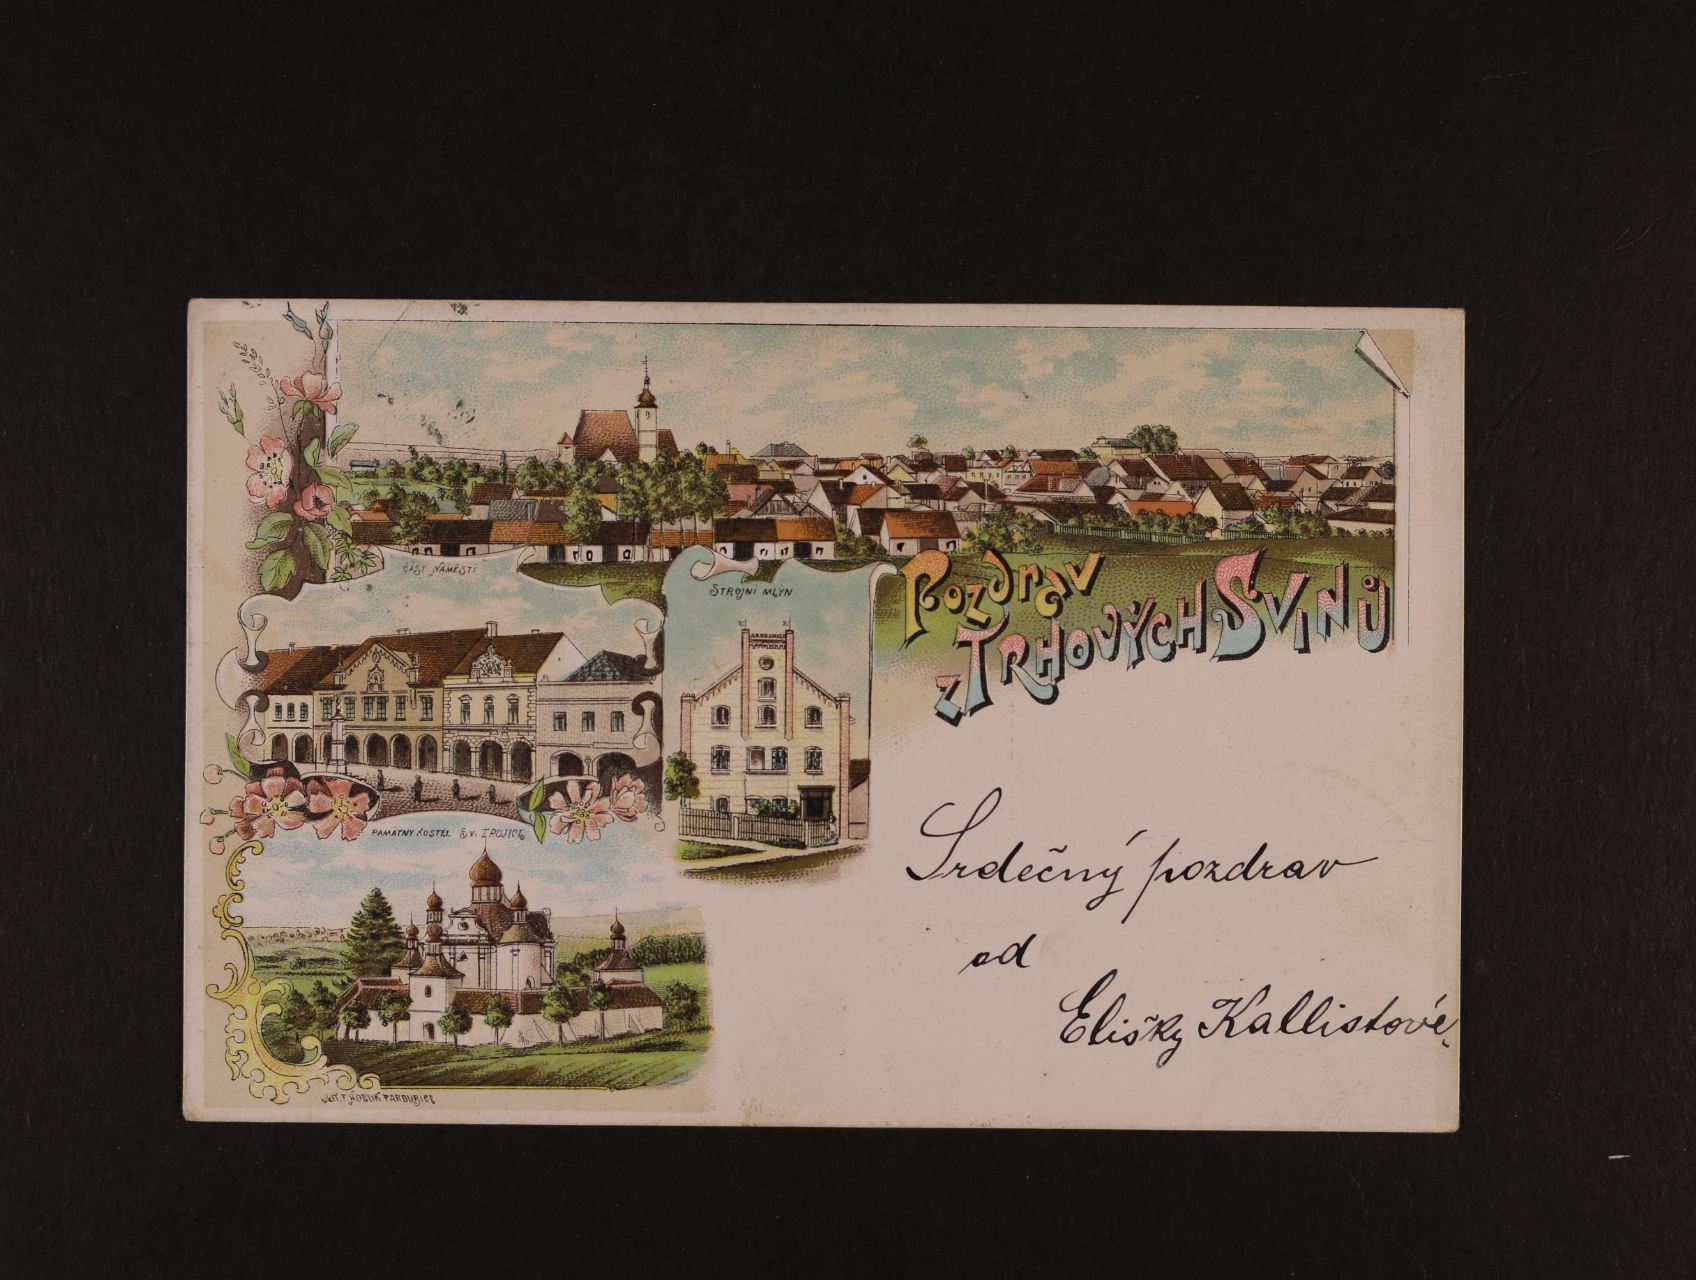 ČÁST NÁMĚSTÍ
STROJNÍ MLÝN
Pozdrav
z Trhových Svinů
PAMÁTNÝ KOSTEL SV. TROJICE
Srdečný pozdrav
od
Elišky Kallistové
LIT. F. HOBLÍK PARDUBICE